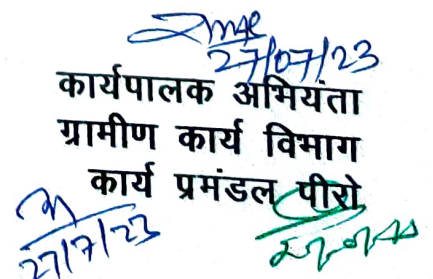 27/07/23
कार्यपालक अभियंता
ग्रामीण कार्य विभाग
कार्य प्रमंडल पीरो
27/7/23